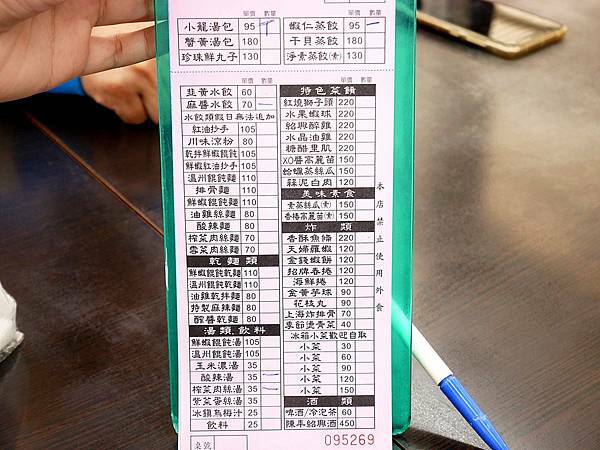 單價 數量
小籠湯包 95
蟹黃湯包 180
珍珠鮮丸子 130
單價 數量
蝦仁蒸餃 95
干貝蒸餃 180
淨素蒸餃(素) 130
單價 數量
韭黃水餃 60
麻醬水餃 70
水餃類假日無法追加
紅油抄手 105
川味涼粉 80
乾拌鮮蝦餛飩 105
鮮蝦紅油抄手 105
溫州餛飩麵 110
排骨麵 110
鮮蝦餛飩麵 110
油雞絲麵 80
酸辣麵 80
榨菜肉絲麵 70
雪菜肉絲麵 70
乾麵類
鮮蝦餛飩乾麵 110
溫州餛飩乾麵 110
油雞乾拌麵 80
特製麻辣麵 80
醡醬乾麵 80
湯類.飲料
鮮蝦餛飩湯 105
溫州餛飩湯 105
玉米濃湯 35
酸辣湯 35
榨菜肉絲湯 35
紫菜蛋絲湯 35
冰鎮烏梅汁 25
飲料 25
桌號
單價 數量
特色菜餚
紅燒獅子頭 220
水果蝦球 220
紹興醉雞 220
水晶油雞 220
糖醋里肌 220
XO醬高麗苗 150
蛤蠣蒸絲瓜 150
蒜泥白肉 120
美味素食
素蒸絲瓜(素) 150
香樁高麗苗(素) 150
炸類
香酥魚條 220
天婦羅蝦 120
金錢蝦餅 120
招牌春捲 120
海鮮捲 120
金黃芋球 90
花枝丸 90
上海炸排骨 70
季節燙青菜 40
冰箱小菜歡迎自取
小菜 30
小菜 60
小菜 90
小菜 120
小菜 150
酒類
啤酒/冷泡茶 60
陳年紹興酒 450
095269
本店禁止使用外食